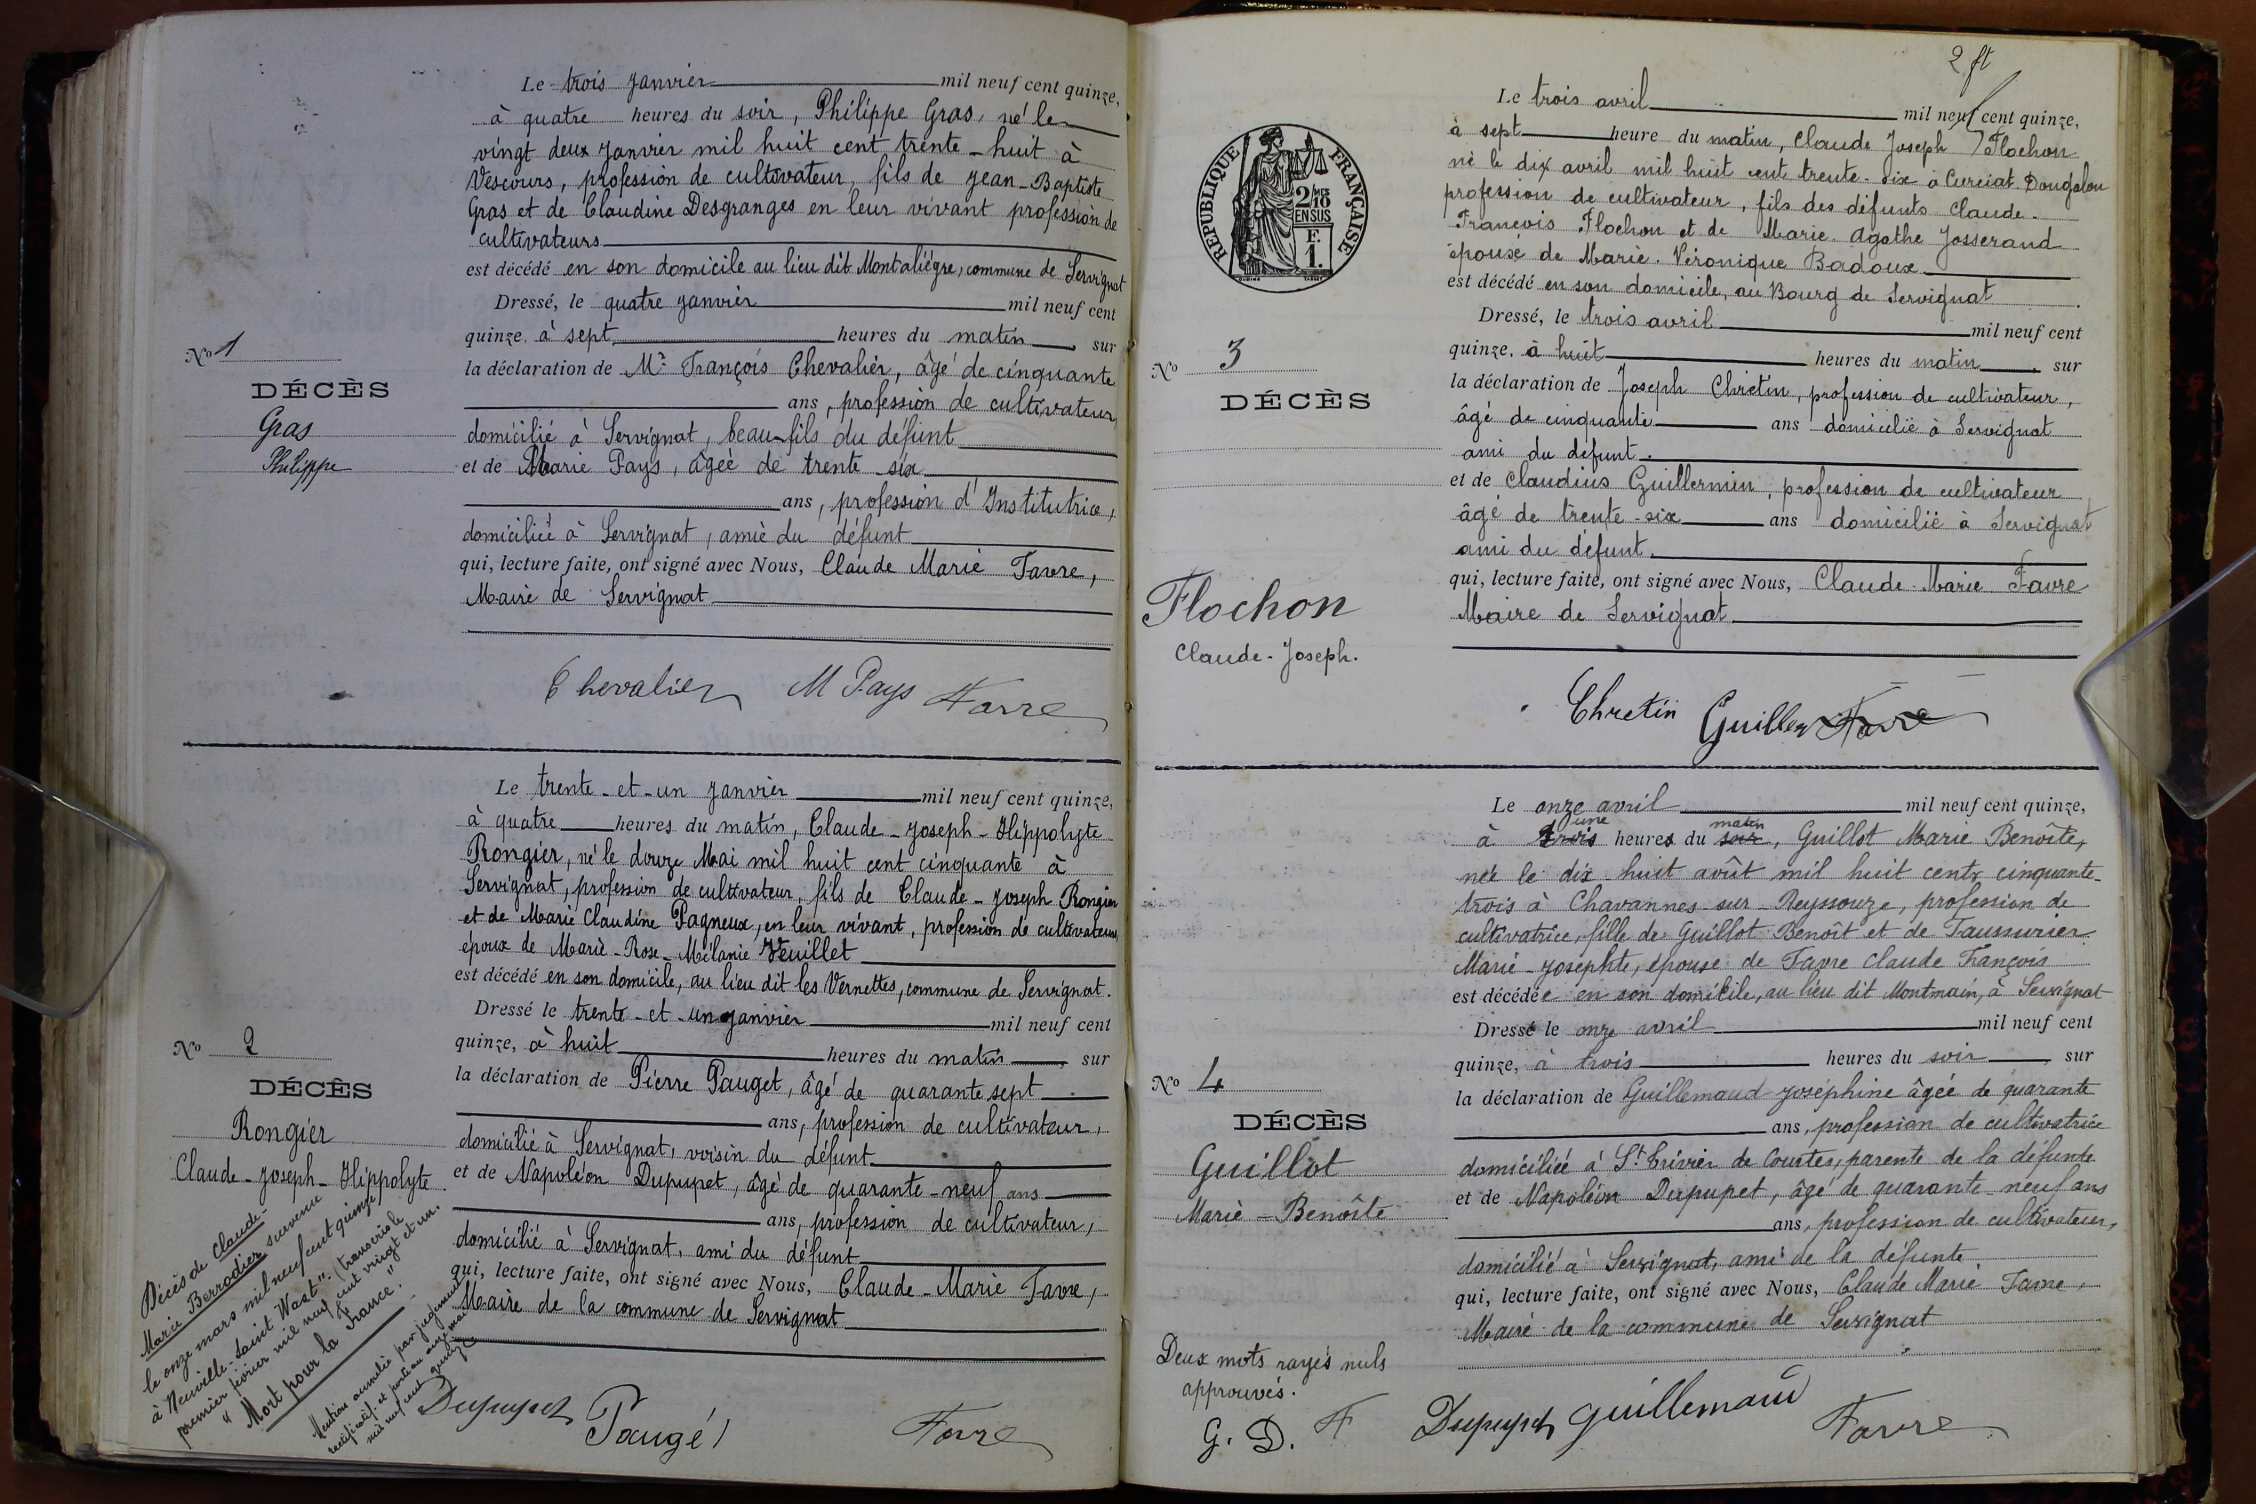 Le trois janvier mil neuf cent quinze,
à quatre heures du soir, Philippe Gras, né le
vingt deux janvier mil huit cent trente-huit à
Vescours, profession de cultivateur, fils de Jean-Baptiste
Gras et de Claudine Desgranges en leur vivant profession de
cultivateurs
est décédé en son domicile au lieu dit Montaliègre, commune de Servignat
Dressé, le quatre janvier mil neuf cent
quinze, à sept heures du matin, sur
la déclaration de Mr François Chevalier, âgé de cinquante
ans, profession de cultivateur
domicilié à Servignat, beau-fils du défunt
et de Marie Pays, âgée de trente-six
ans, profession d'Institutrice,
domiciliée à Servignat, amie du défunt
qui, lecture faite, ont signé avec Nous, Claude Marie Favre,
Maire de Servignat
Nº 1
DÉCÈS
Gras
Philippe
Chevalier M Pays Favre
Le trente-et-un janvier mil neuf cent quinze,
à quatre heures du matin, Claude-Joseph-Hippolyte
Rongier, né le douze Mai mil huit cent cinquante à
Servignat, profession de cultivateur, fils de Claude-Joseph Rongier
et de Marie Claudine Pagneux, en leur vivant, profession de cultivateurs
époux de Marie-Rose-Mélanie Veuillet
est décédé en son domicile, au lieu dit les Vernettes, commune de Servignat.
Dressé le trente-et-un janvier mil neuf cent
quinze, à huit heures du matin, sur
la déclaration de Pierre Pauget, âgé de quarante sept
ans, profession de cultivateur,
domicilié à Servignat, voisin du défunt
et de Napoléon Dupupet, âgé de quarante-neuf ans
ans, profession de cultivateur,
domicilié à Servignat, ami du défunt
qui, lecture faite, ont signé avec Nous, Claude-Marie Favre,
Maire de la commune de Servignat
Nº 2
DÉCÈS
Rongier
Claude-Joseph-Hippolyte
Décès de Claude-
Marie Berrodier survenu
le onze mars mil neuf cent quinze
à Neuville-Saint Wast". (transcrit le
premier février mil neuf cent vingt et un.
"Mort pour la France."
Mention annulée par jugement
rectificatif et portée au onze mai
mil neuf cent quinze
Dupupet Paugét Favre
2 ft
Le trois avril mil neuf cent quinze,
à sept heure du matin, Claude Joseph Flochon
né le dix avril mil huit cent trente-six à Curciat Dongalon
profession de cultivateur, fils des défunts Claude-
François Flochon et de Marie Agathe Josserand
époux de Marie-Véronique Badoux
est décédé en son domicile, au Bourg de Servignat
Dressé, le trois avril mil neuf cent
quinze, à huit heures du matin, sur
la déclaration de Joseph Chretin, profession de cultivateur,
âgé de cinquante ans domicilié à Servignat
ami du défunt.
et de Claudius Guillermin, profession de cultivateur
âgé de trente-six ans domicilié à Servignat
ami du défunt.
qui, lecture faite, ont signé avec Nous, Claude-Marie Favre
Maire de Servignat
RÉPUBLIQUE FRANÇAISE
2/10 MES
EN SUS
F.
1.
Nº 3
DÉCÈS
Flochon
Claude-Joseph.
Chretin Guiller Favre
Le onze avril mil neuf cent quinze,
une matin
à trois heures du soir, Guillot Marie Benoîte,
née le dix-huit août mil huit cents cinquante-
trois à Chavannes-sur-Reyssouze, profession de
cultivatrice, fille de Guillot Benoît et de Faussurier
Marie-Josephte, épouse de Favre Claude François
est décédée en son domicile, au lieu dit Montmain, à Servignat
Dressé le onze avril mil neuf cent
quinze, à trois heures du soir sur
la déclaration de Guillemaud Joséphine âgée de quarante
ans, profession de cultivatrice
domiciliée à St Trivier de Courtes, parente de la défunte
et de Napoléon Dupupet, âgé de quarante-neuf ans
ans, profession de cultivateur,
domicilié à Servignat, ami de la défunte
qui, lecture faite, ont signé avec Nous, Claude Marie Favre,
Maire de la commune de Servignat
Nº 4
DÉCÈS
Guillot
Marie-Benoîte
Deux mots rayés nuls
approuvés.
G. D. F
Dupupet Guillemaud Favre